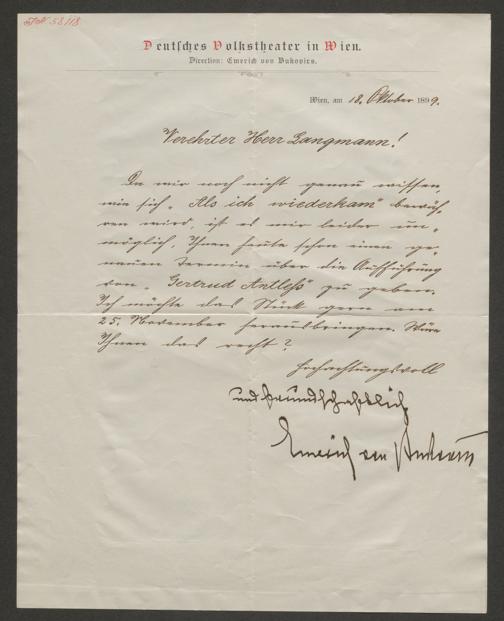 J.N. 58118
Deutsches Volkstheater in Wien.
Direction: Emerich von Bukovics.
Wien, am 18. Oktober 1899.
Verehrter Herr Langmann!
Da wir noch nicht genau wissen,
wie sich „Als ich wiederkam" bewäh-
ren wird, ist es mir leider un-
möglich, Ihnen heute schon einen ge-
nauen Termin über die Aufführung
von „Gertrud Antleß" zu geben.
Ich möchte das Stück gern am
25. November herausbringen. Wäre
Ihnen das recht?
Hochachtungsvoll
und freundschaftlich
Emerich von Bukovics